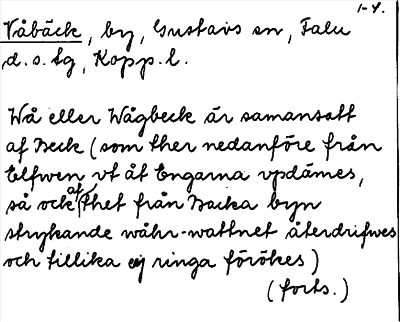 1-4.
Våbäck, by, Gustavs sn, Falu
d.s. tg, Kopp. l.
Wå eller Wågbeck är samansatt
af Beck (som ther nedanföre från
Elfwen vt åt Engarna vpdämes,
så ock af thet från Backa byn
strykande wåhr-wattnet återdrifwes
och tillika ej ringa förökes)
(forts.)